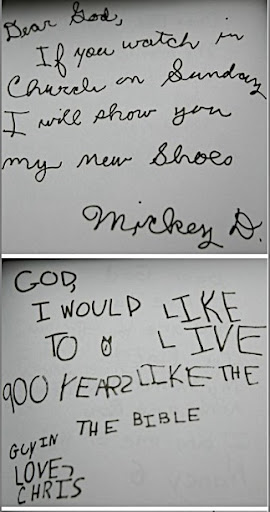 Dear God,
If you watch in
Church on Sunday
I will show you
my new Shoes
Mickey D.
GOD,
I WOULD LIKE
TO LIVE
900 YEARS LIKE THE
GUY IN THE BIBLE
LOVE,
CHRIS